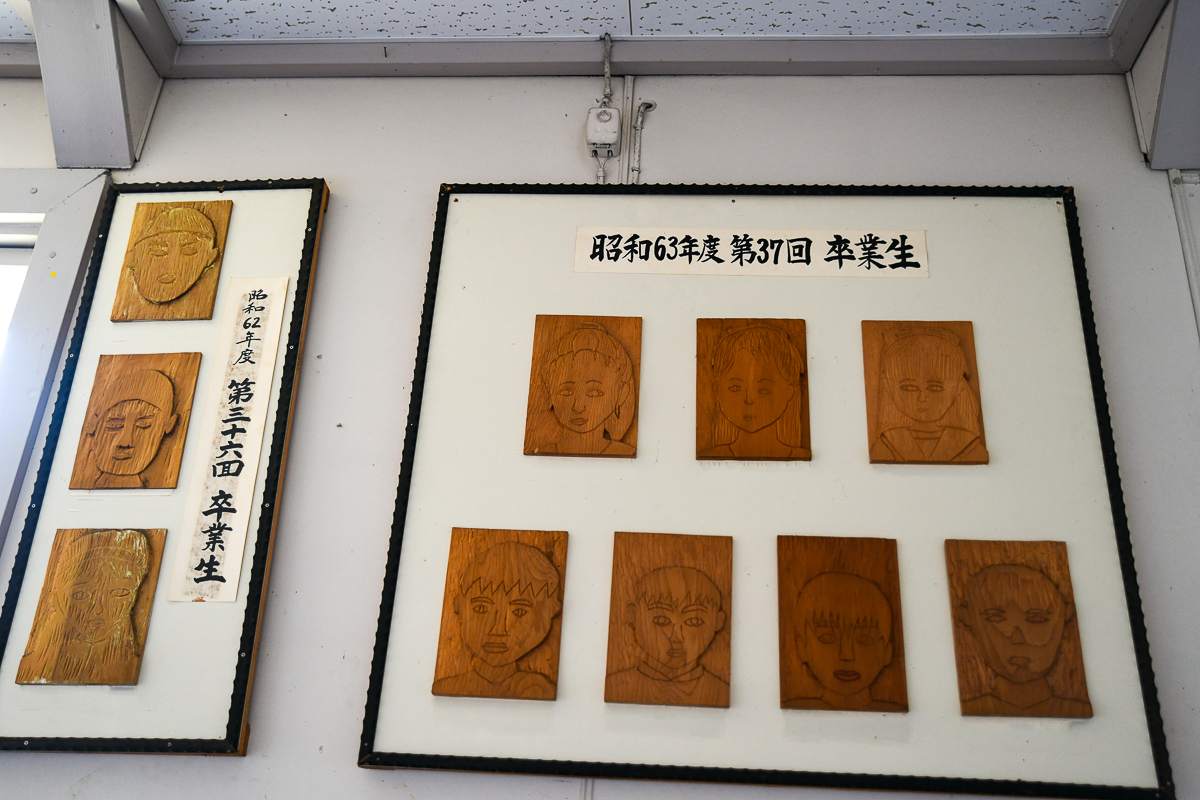 昭和62年度 第三十六回 卒業生
昭和63年度 第37回 卒業生